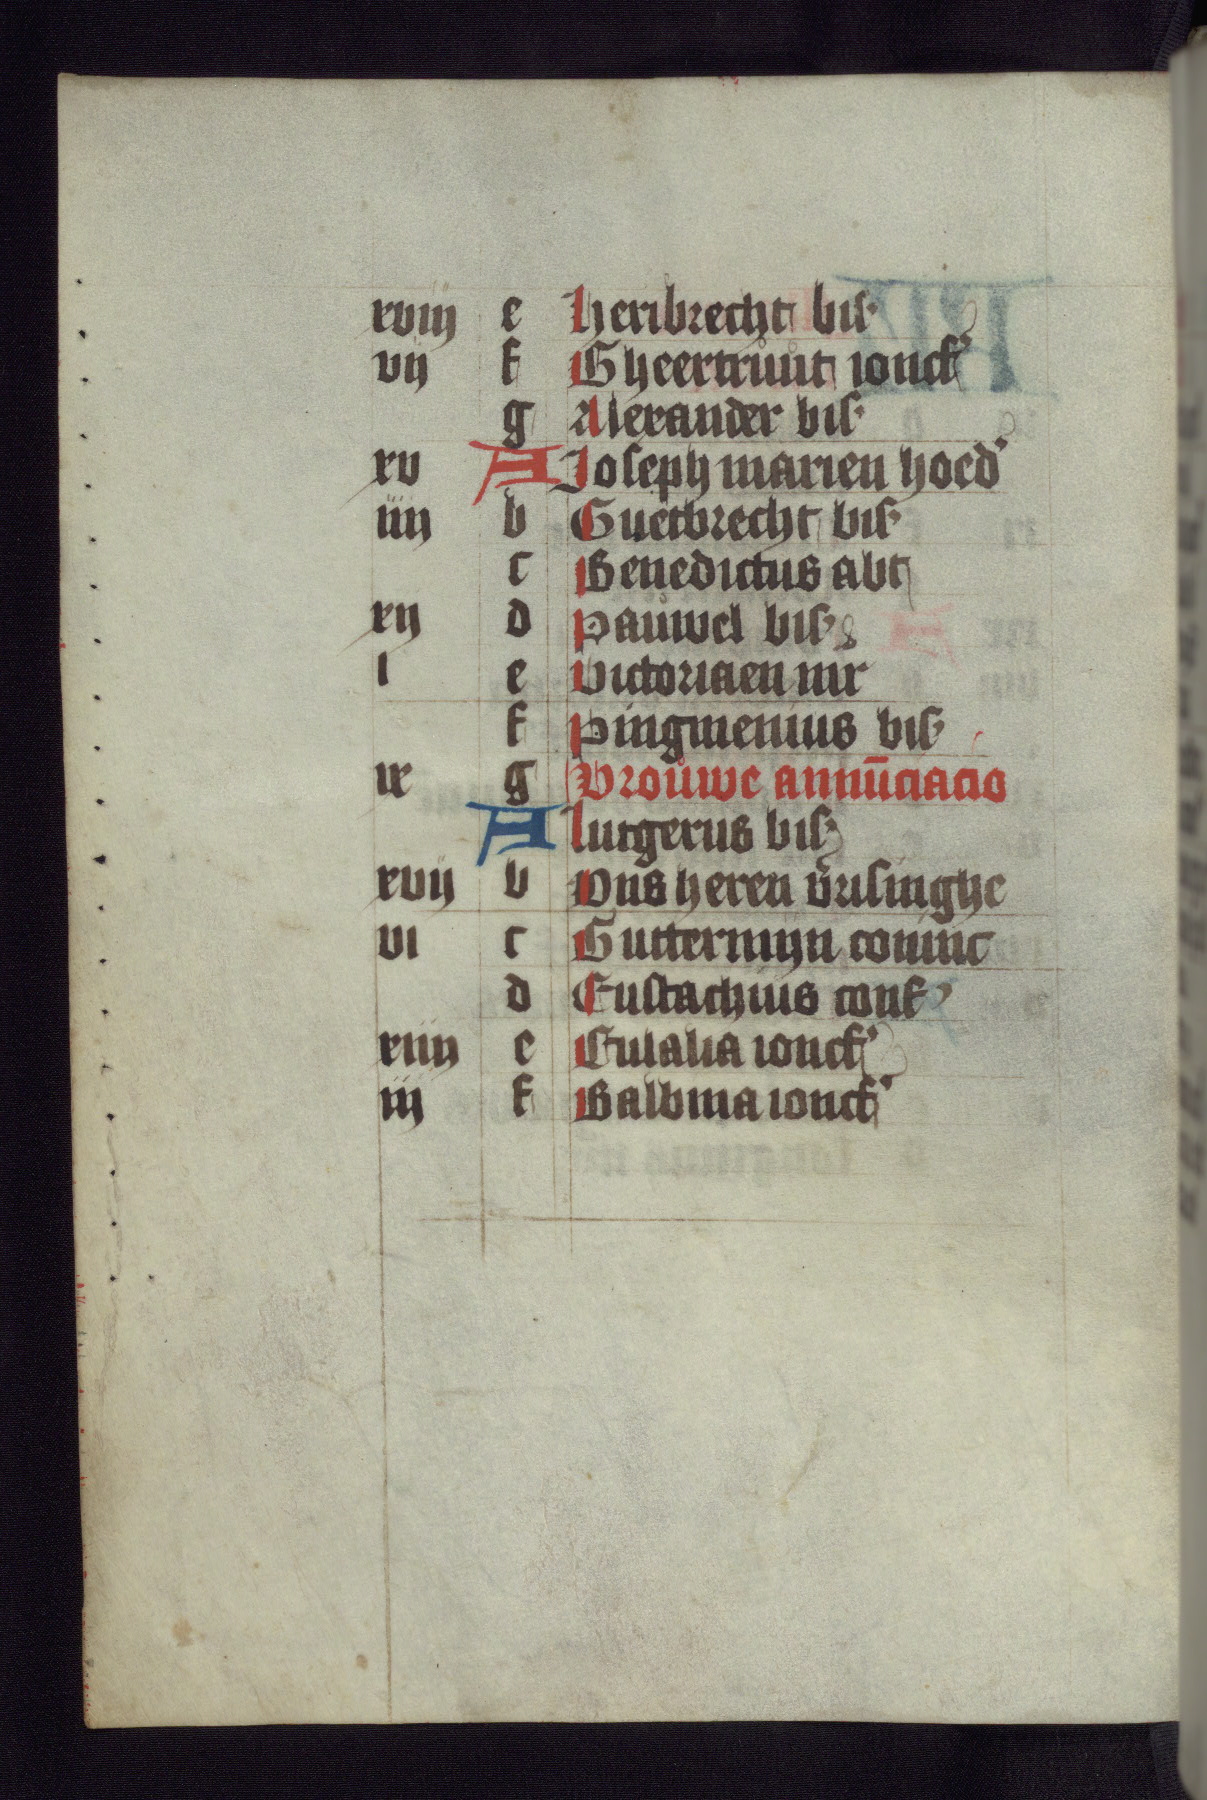 xviij e Heribrecht bisſ
vij f Gheertruut ionckᶠ
g Alexander bisſ
xv A Joseph marien hoedʾ
iiij b Guetbrecht bisſ
c Benedictus abt
xij d Pauwel bisſ
i e Victoriaen mr
f Pingmenius bisſ
ix g Vrouwe annūciacio
A lutgerus bisſ
xvij b Ons heren v̾risinghe
vi c Guttermijn coninc
d Eustachius conf
xiiij e Eulalia ionckᶠ
iij f Balbina ionckᶠ